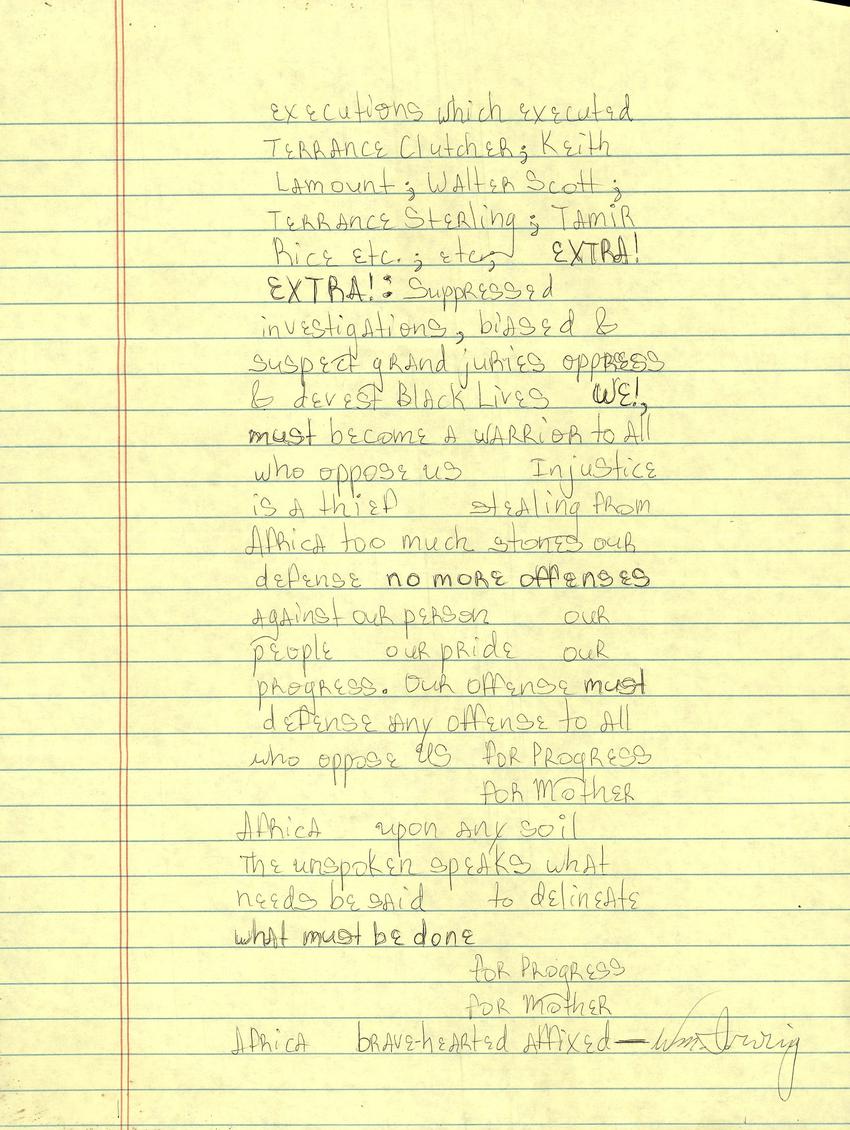 executions which executed
TERRANCE Clutcher; Keith
Lamount; WALTER Scott;
TERRANCE Sterling; TAMIR
Rice etc.; etc; EXTRA!
EXTRA!: Suppressed
investigations, biased &
suspect grand juries oppress
& devest Black Lives WE!,
must become a WARRIOR to All
who oppose us Injustice
is a thief stealing from
Africa too much stones our
defense no more offenses
against our person our
people our pride our
progress. Our offense must
defense any offense to all
who oppose us for Progress
for Mother
Africa upon any soil
The unspoken speaks what
needs be said to delineate
what must be done
for Progress
for Mother
Africa brave-hearted affixed—